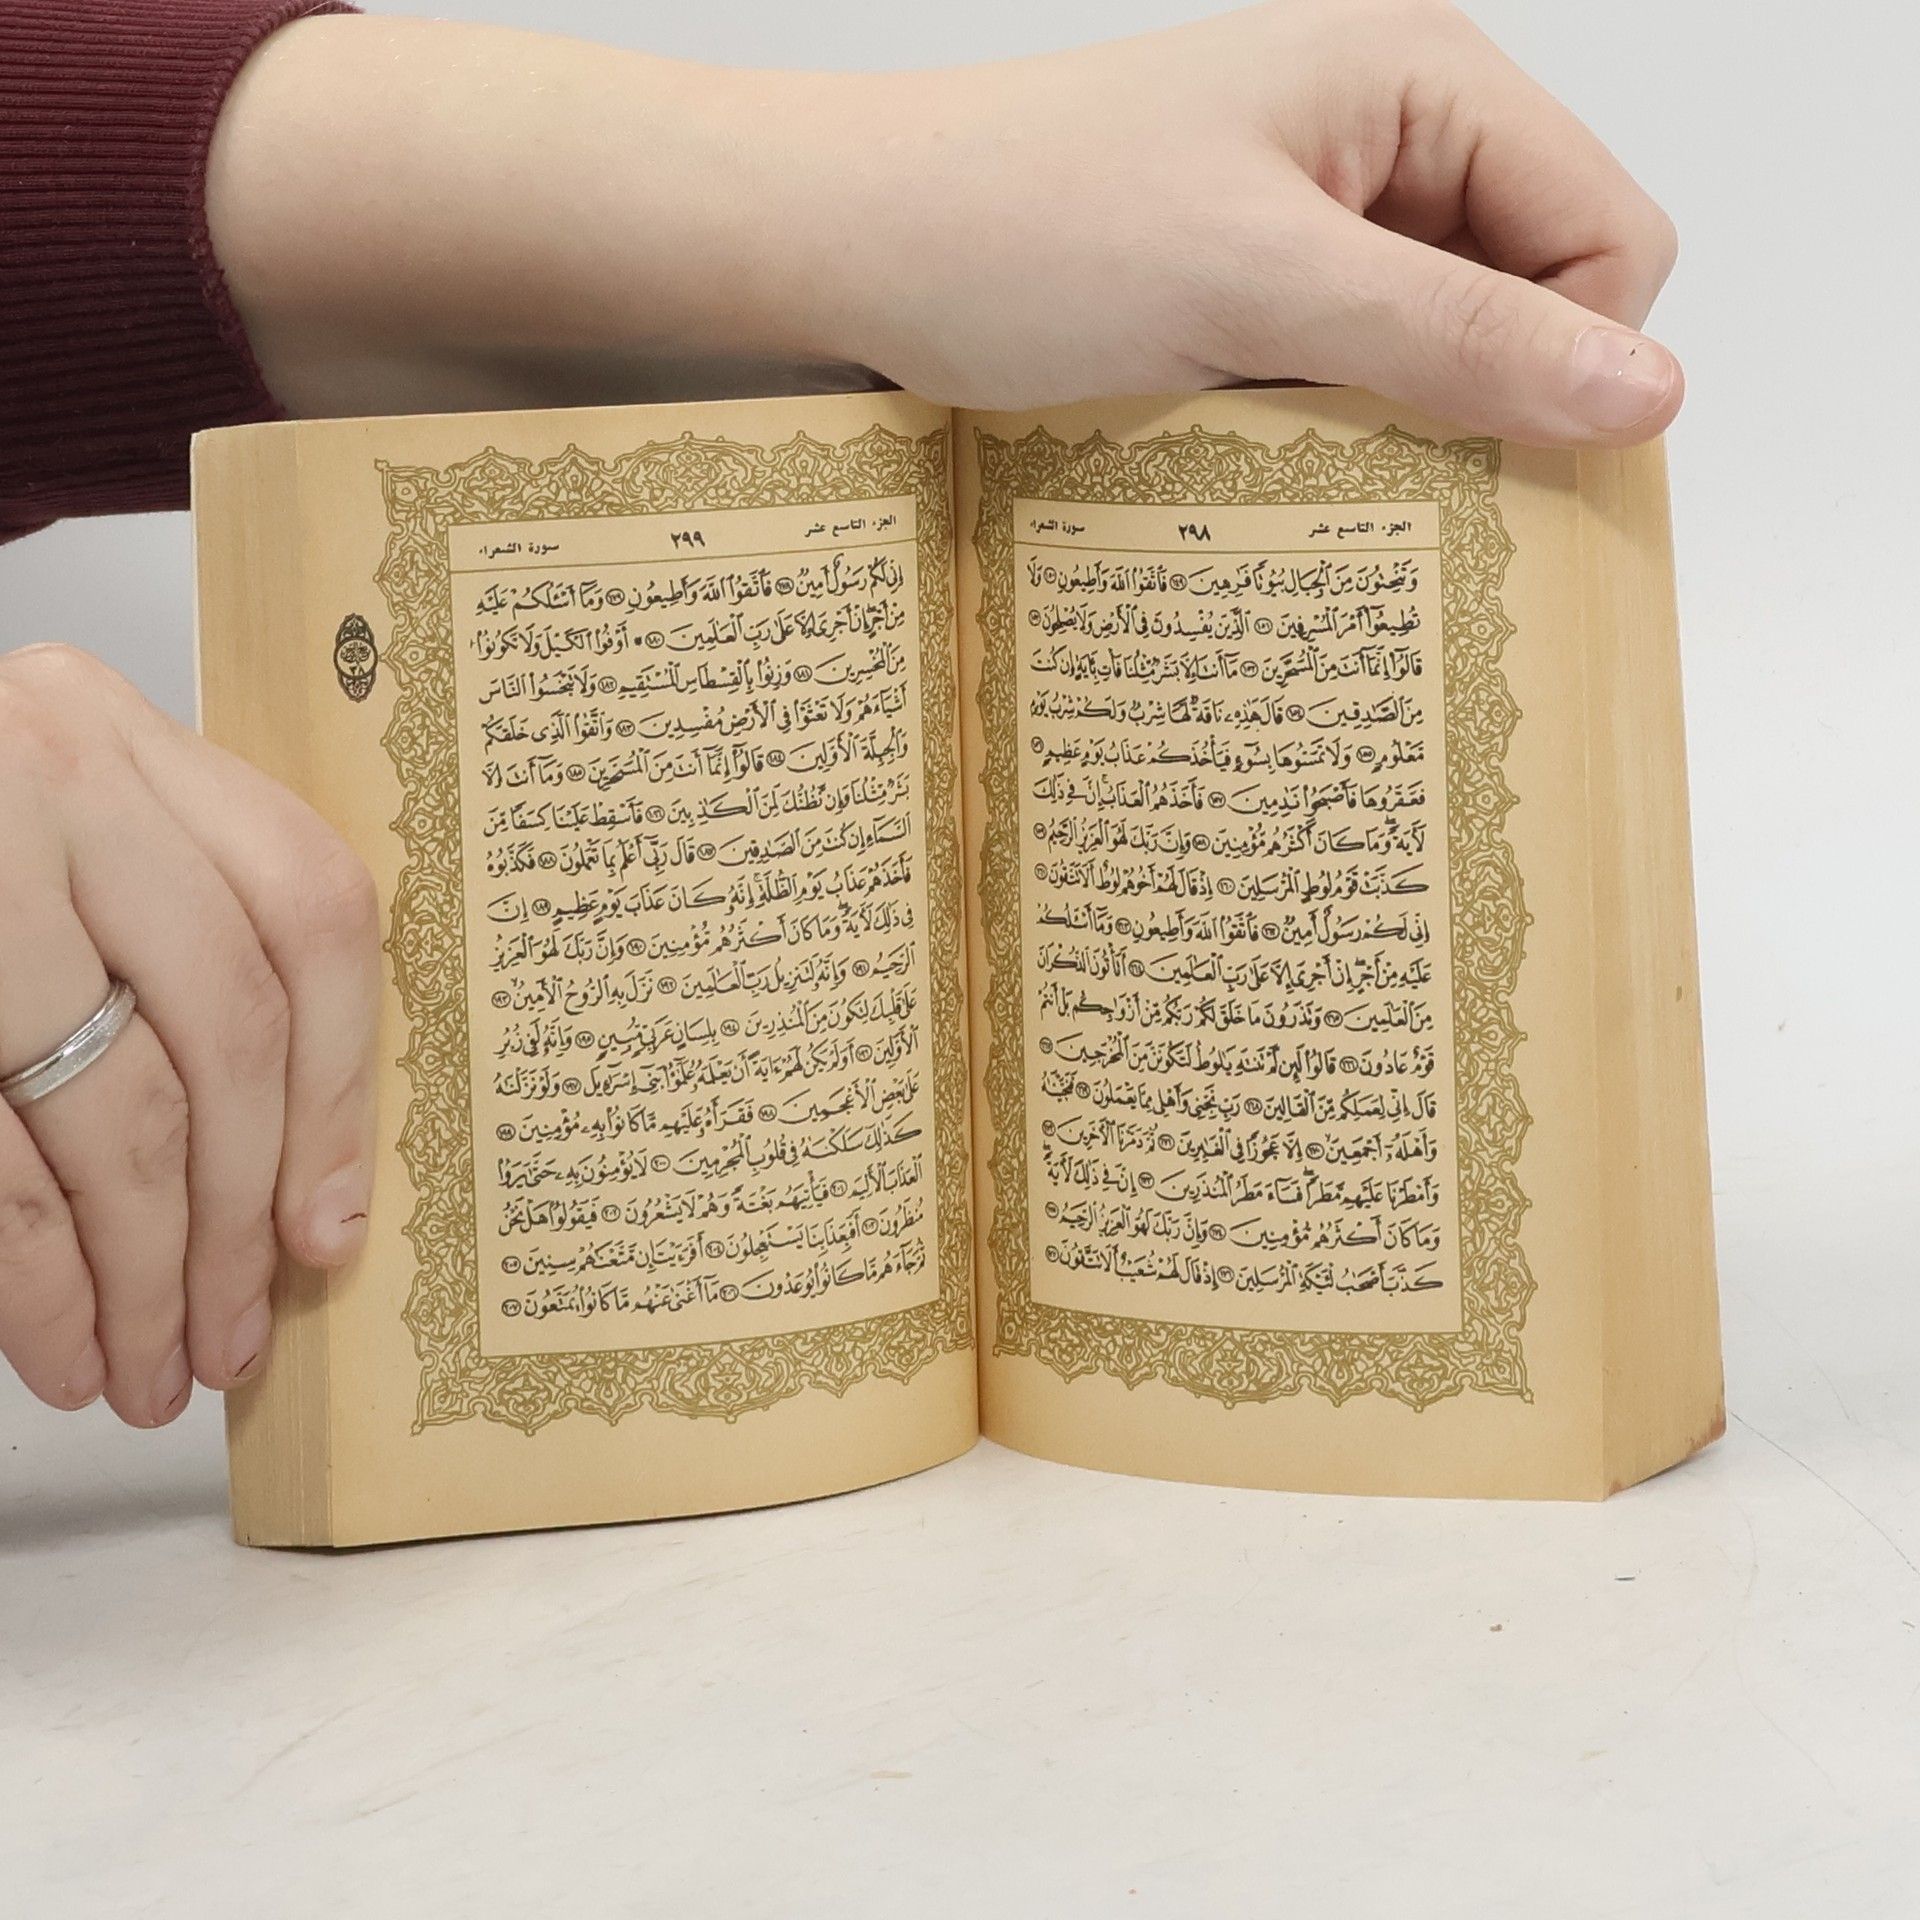 الجزء التاسع عشر ٢٩٨ سورة الشعراء
وَتَنْحِتُونَ مِنَ ٱلْجِبَالِ بُيُوتًا فَٰرِهِينَ ١٤٩ فَٱتَّقُوا۟ ٱللَّهَ وَأَطِيعُونِ ١٥٠ وَلَا
تُطِيعُوٓا۟ أَمْرَ ٱلْمُسْرِفِينَ ١٥١ ٱلَّذِينَ يُفْسِدُونَ فِى ٱلْأَرْضِ وَلَا يُصْلِحُونَ ١٥٢
قَالُوٓا۟ إِنَّمَآ أَنتَ مِنَ ٱلْمُسَحَّرِينَ ١٥٣ مَآ أَنتَ إِلَّا بَشَرٌ مِّثْلُنَا فَأْتِ بِـَٔايَةٍ إِن كُنتَ
مِنَ ٱلصَّٰدِقِينَ ١٥٤ قَالَ هَٰذِهِۦ نَاقَةٌ لَّهَا شِرْبٌ وَلَكُمْ شِرْبُ يَوْمٍ
مَّعْلُومٍ ١٥٥ وَلَا تَمَسُّوهَا بِسُوٓءٍ فَيَأْخُذَكُمْ عَذَابُ يَوْمٍ عَظِيمٍ ١٥٦
فَعَقَرُوهَا فَأَصْبَحُوا۟ نَٰدِمِينَ ١٥٧ فَأَخَذَهُمُ ٱلْعَذَابُ ۗ إِنَّ فِى ذَٰلِكَ
لَأَيَةً ۖ وَمَا كَانَ أَكْثَرُهُم مُّؤْمِنِينَ ١٥٨ وَإِنَّ رَبَّكَ لَهُوَ ٱلْعَزِيزُ ٱلرَّحِيمُ ١٥٩
كَذَّبَتْ قَوْمُ لُوطٍ ٱلْمُرْسَلِينَ ١٦٠ إِذْ قَالَ لَهُمْ أَخُوهُمْ لُوطٌ أَلَا تَتَّقُونَ ١٦١
إِنِّى لَكُمْ رَسُولٌ أَمِينٌ ١٦٢ فَٱتَّقُوا۟ ٱللَّهَ وَأَطِيعُونِ ١٦٣ وَمَآ أَسْـَٔلُكُمْ
عَلَيْهِ مِنْ أَجْرٍ ۖ إِنْ أَجْرِىَ إِلَّا عَلَىٰ رَبِّ ٱلْعَٰلَمِينَ ١٦٤ أَتَأْتُونَ ٱلذُّكْرَانَ
مِنَ ٱلْعَٰلَمِينَ ١٦٥ وَتَذَرُونَ مَا خَلَقَ لَكُمْ رَبُّكُم مِّنْ أَزْوَٰجِكُم ۚ بَلْ أَنتُمْ
قَوْمٌ عَادُونَ ١٦٦ قَالُوا۟ لَئِن لَّمْ تَنتَهِ يَٰلُوطُ لَتَكُونَنَّ مِنَ ٱلْمُخْرَجِينَ ١٦٧
قَالَ إِنِّى لِعَمَلِكُم مِّنَ ٱلْقَالِينَ ١٦٨ رَبِّ نَجِّنِى وَأَهْلِى مِمَّا يَعْمَلُونَ ١٦٩ فَنَجَّيْنَٰهُ
وَأَهْلَهُۥٓ أَجْمَعِينَ ١٧٠ إِلَّا عَجُوزًا فِى ٱلْغَٰبِرِينَ ١٧١ ثُمَّ دَمَّرْنَا ٱلْأَخَرِينَ ١٧٢
وَأَمْطَرْنَا عَلَيْهِم مَّطَرًا ۖ فَسَآءَ مَطَرُ ٱلْمُنذَرِينَ ١٧٣ إِنَّ فِى ذَٰلِكَ لَأَيَةً ۖ
وَمَا كَانَ أَكْثَرُهُم مُّؤْمِنِينَ ١٧٤ وَإِنَّ رَبَّكَ لَهُوَ ٱلْعَزِيزُ ٱلرَّحِيمُ ١٧٥
كَذَّبَ أَصْحَٰبُ لْـَٔيْكَةِ ٱلْمُرْسَلِينَ ١٧٦ إِذْ قَالَ لَهُمْ شُعَيْبٌ أَلَا تَتَّقُونَ ١٧٧
الجزء التاسع عشر ٢٩٩ سورة الشعراء
إِنِّى لَكُمْ رَسُولٌ أَمِينٌ ١٧٨ فَٱتَّقُوا۟ ٱللَّهَ وَأَطِيعُونِ ١٧٩ وَمَآ أَسْـَٔلُكُمْ عَلَيْهِ
مِنْ أَجْرٍ ۖ إِنْ أَجْرِىَ إِلَّا عَلَىٰ رَبِّ ٱلْعَٰلَمِينَ ١٨٠ * أَوْفُوا۟ ٱلْكَيْلَ وَلَا تَكُونُوا۟
مِنَ ٱلْمُخْسِرِينَ ١٨١ وَزِنُوا۟ بِٱلْقِسْطَاسِ ٱلْمُسْتَقِيمِ ١٨٢ وَلَا تَبْخَسُوا۟ ٱلنَّاسَ
أَشْيَآءَهُمْ وَلَا تَعْثَوْا۟ فِى ٱلْأَرْضِ مُفْسِدِينَ ١٨٣ وَٱتَّقُوا۟ ٱلَّذِى خَلَقَكُمْ
وَٱلْجِبِلَّةَ ٱلْأَوَّلِينَ ١٨٤ قَالُوٓا۟ إِنَّمَآ أَنتَ مِنَ ٱلْمُسَحَّرِينَ ١٨٥ وَمَآ أَنتَ إِلَّا
بَشَرٌ مِّثْلُنَا وَإِن نَّظُنُّكَ لَمِنَ ٱلْكَٰذِبِينَ ١٨٦ فَأَسْقِطْ عَلَيْنَا كِسَفًا مِّنَ
ٱلسَّمَآءِ إِن كُنتَ مِنَ ٱلصَّٰدِقِينَ ١٨٧ قَالَ رَبِّىٓ أَعْلَمُ بِمَا تَعْمَلُونَ ١٨٨ فَكَذَّبُوهُ
فَأَخَذَهُمْ عَذَابُ يَوْمِ ٱلظُّلَّةِ ۚ إِنَّهُۥ كَانَ عَذَابَ يَوْمٍ عَظِيمٍ ١٨٩ إِنَّ
فِى ذَٰلِكَ لَأَيَةً ۖ وَمَا كَانَ أَكْثَرُهُم مُّؤْمِنِينَ ١٩٠ وَإِنَّ رَبَّكَ لَهُوَ ٱلْعَزِيزُ
ٱلرَّحِيمُ ١٩١ وَإِنَّهُۥ لَتَنزِيلُ رَبِّ ٱلْعَٰلَمِينَ ١٩٢ نَزَلَ بِهِ ٱلرُّوحُ ٱلْأَمِينُ ١٩٣
عَلَىٰ قَلْبِكَ لِتَكُونَ مِنَ ٱلْمُنذِرِينَ ١٩٤ بِلِسَانٍ عَرَبِىٍّ مُّبِينٍ ١٩٥ وَإِنَّهُۥ لَفِى زُبُرِ
ٱلْأَوَّلِينَ ١٩٦ أَوَلَمْ يَكُن لَّهُمْ ءَايَةً أَن يَعْلَمَهُۥ عُلَمَٰٓؤُا۟ بَنِىٓ إِسْرَٰٓءِيلَ ١٩٧ وَلَوْ نَزَّلْنَٰهُ
عَلَىٰ بَعْضِ ٱلْأَعْجَمِينَ ١٩٨ فَقَرَأَهُۥ عَلَيْهِم مَّا كَانُوا۟ بِهِۦ مُؤْمِنِينَ ١٩٩
كَذَٰلِكَ سَلَكْنَٰهُ فِى قُلُوبِ ٱلْمُجْرِمِينَ ٢٠٠ لَا يُؤْمِنُونَ بِهِۦ حَتَّىٰ يَرَوُا۟
ٱلْعَذَابَ ٱلْأَلِيمَ ٢٠١ فَيَأْتِيَهُم بَغْتَةً وَهُمْ لَا يَشْعُرُونَ ٢٠٢ فَيَقُولُوا۟ هَلْ نَحْنُ
مُنظَرُونَ ٢٠٣ أَفَبِعَذَابِنَا يَسْتَعْجِلُونَ ٢٠٤ أَفَرَءَيْتَ إِن مَّتَّعْنَٰهُمْ سِنِينَ ٢٠٥
ثُمَّ جَآءَهُم مَّا كَانُوا۟ يُوعَدُونَ ٢٠٦ مَآ أَغْنَىٰ عَنْهُم مَّا كَانُوا۟ يُمَتَّعُونَ ٢٠٧
٣٨